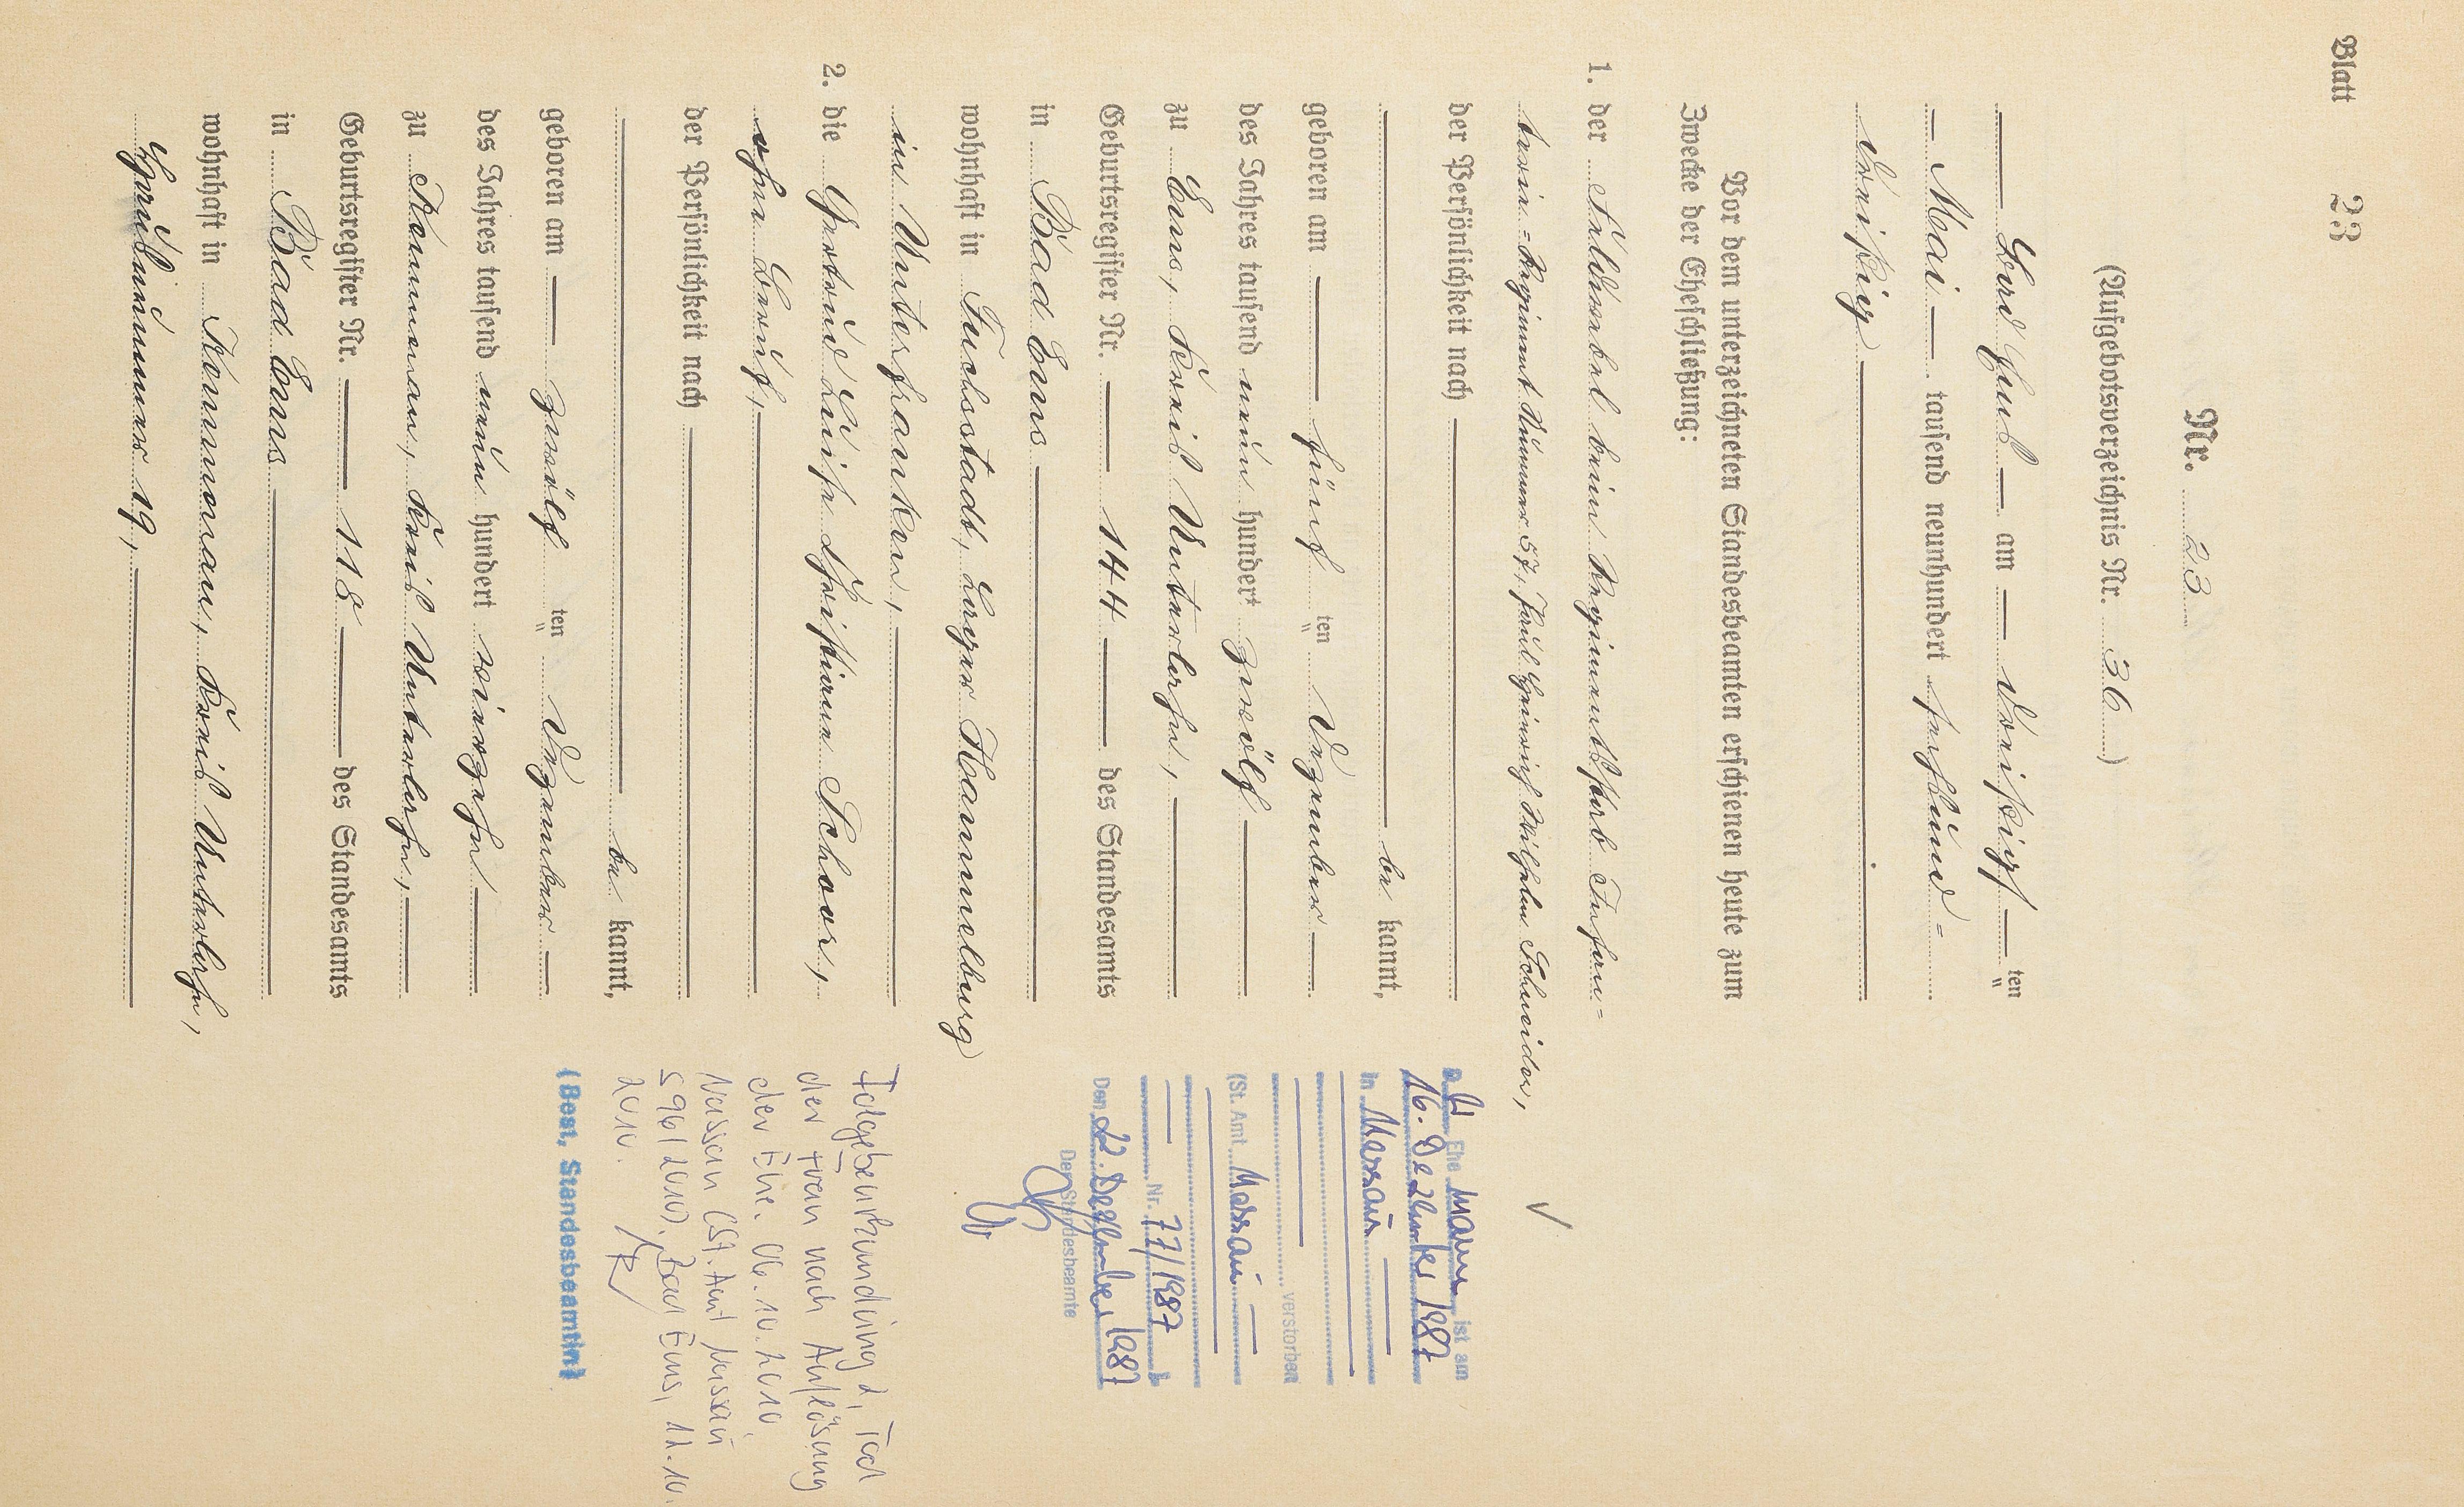 Blatt 23
Nr. 23
(Aufgebotsverzeichnis Nr. 36)
Bad Ems am dreißig ten
Mai tausend neunhundert sechsund=
dreißig
Vor dem unterzeichneten Standesbeamten erschienen heute zum
Zwecke der Eheschließung:
1. der Feldwebel beim Regimentsstab Infan=
terie=Regiment Nummer 57, Paul Heinrich Wilhelm Schneider,
der Persönlichkeit nach
be kannt,
geboren am fünf ten Dezember
des Jahres tausend neun hundert zwölf
zu Ems, Kreis Unterlahn,
Geburtsregister Nr. 144 des Standesamts
in Bad Ems
wohnhaft in Fuchsstadt, Lager Hammelburg
in Unterfranken,
2. die Gertrud Luise Christiane Schaar,
ohne Beruf,
der Persönlichkeit nach
be kannt,
geboren am zwölf ten Dezember
des Jahres tausend neun hundert vierzehn
zu Kemmenau, Kreis Unterlahn,
Geburtsregister Nr. 118 des Standesamts
in Bad Ems
wohnhaft in Kemmenau, Kreis Unterlahn,
Hausnummer 19,
Ehemann ist am
16. Dezember 1987
in Nassau
verstorben
(St. Amt Nassau
Nr. 77/1987)
Den 22. Dezember 1987
Der Standesbeamte
Folgebeurkundung d. Tod
der Frau nach Auflösung
der Ehe. 06.10.2010,
Nassau (St. Amt Nassau
S 96/2010). Bad Ems, 11.10.
2010.
(Best. Standesbeamtin)